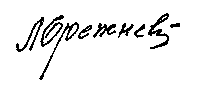 ЛБрежнев